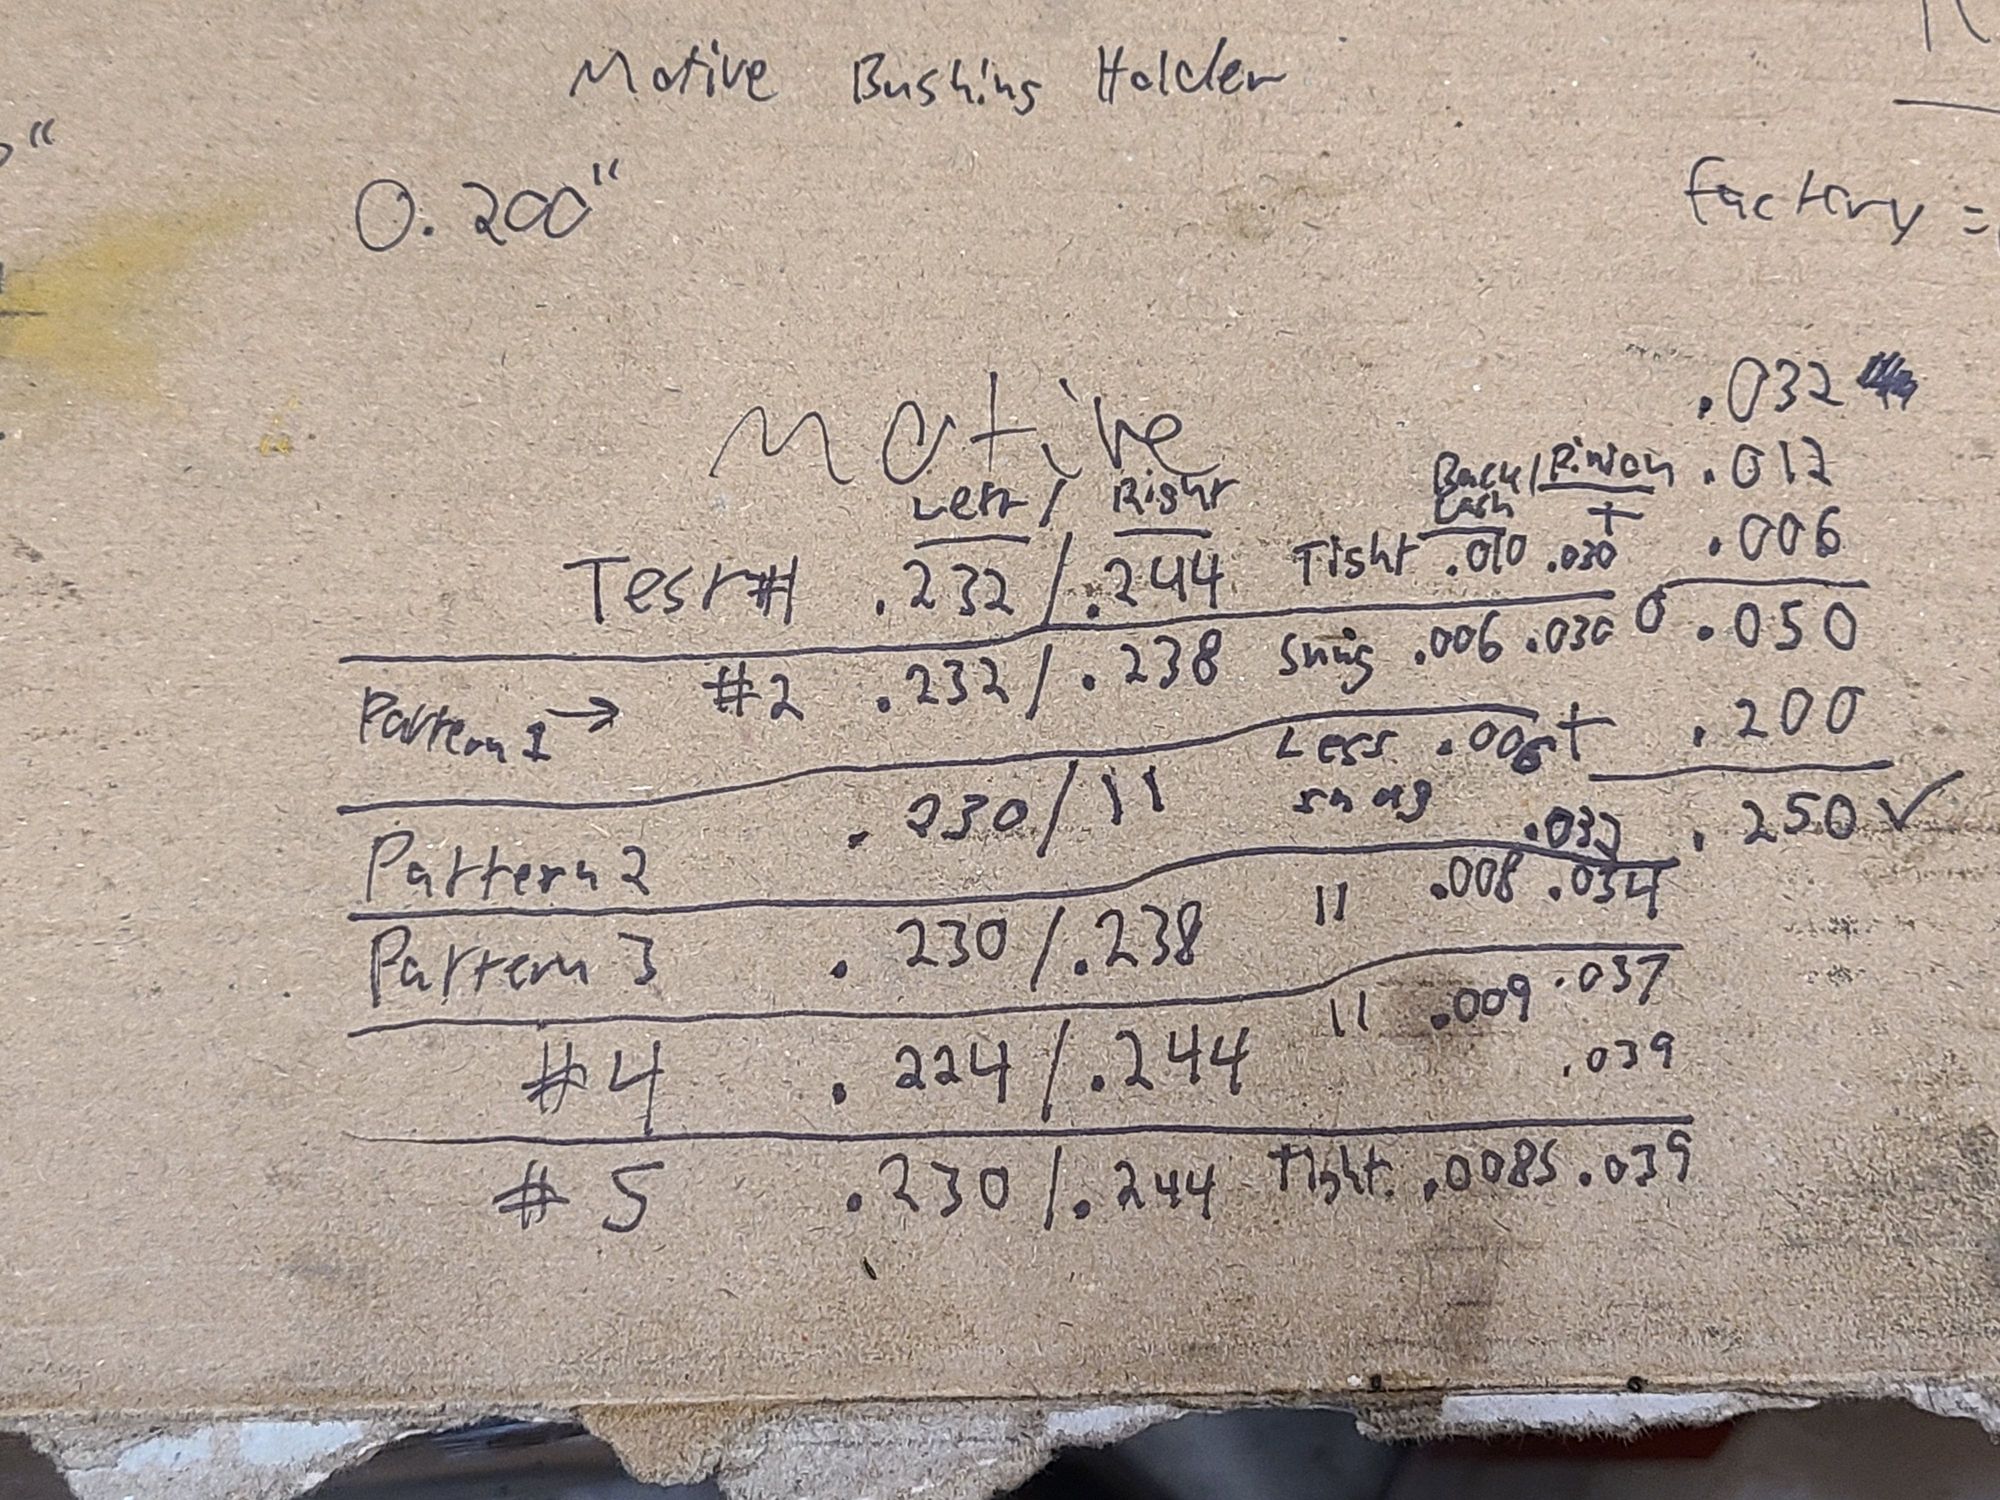 Motive Bushing Holder
0.200"
Factory =
.032
Motive
Left / Right
Back Lash / Pinion
.012
+
.006
Test #1 .232 / .244 Tight .010 .030
0.050
#2 .232 / .238 Snug .006 .030
Pattern 1 →
+ .200
Pattern 2 .230 / 11 Less Snug .006 .032
.250 ✓
Pattern 3 .230 / .238 11 .008 .034
#4 .224 / .244 11 .009 .037
.039
#5 .230 / .244 Tight .0085 .039